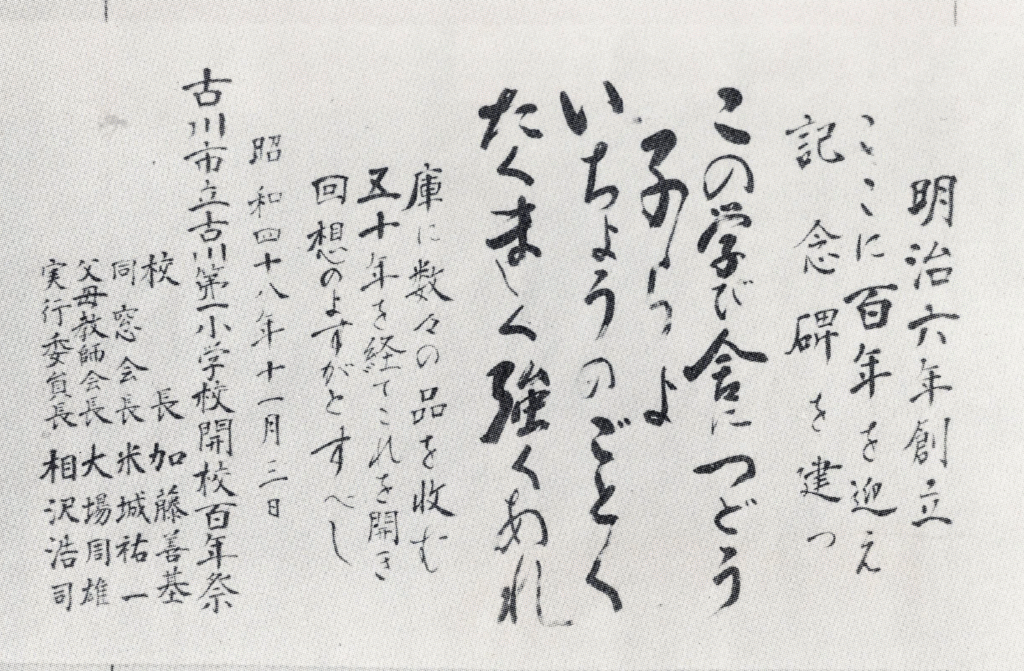 明治六年創立
ここに百年を迎え
記念碑を建つ
この学び舎につどう
子らよ
いちょうのごとく
たくましく強くあれ
庫に数々の品を収む
五十年を経てこれを開き
回想のよすがとすべし
昭和四十八年十一月三日
古川市立古川第一小学校開校百年祭
校長 加藤善基
同窓会長 米城祐一
父母教師会長 大場周雄
実行委員長 相沢浩司